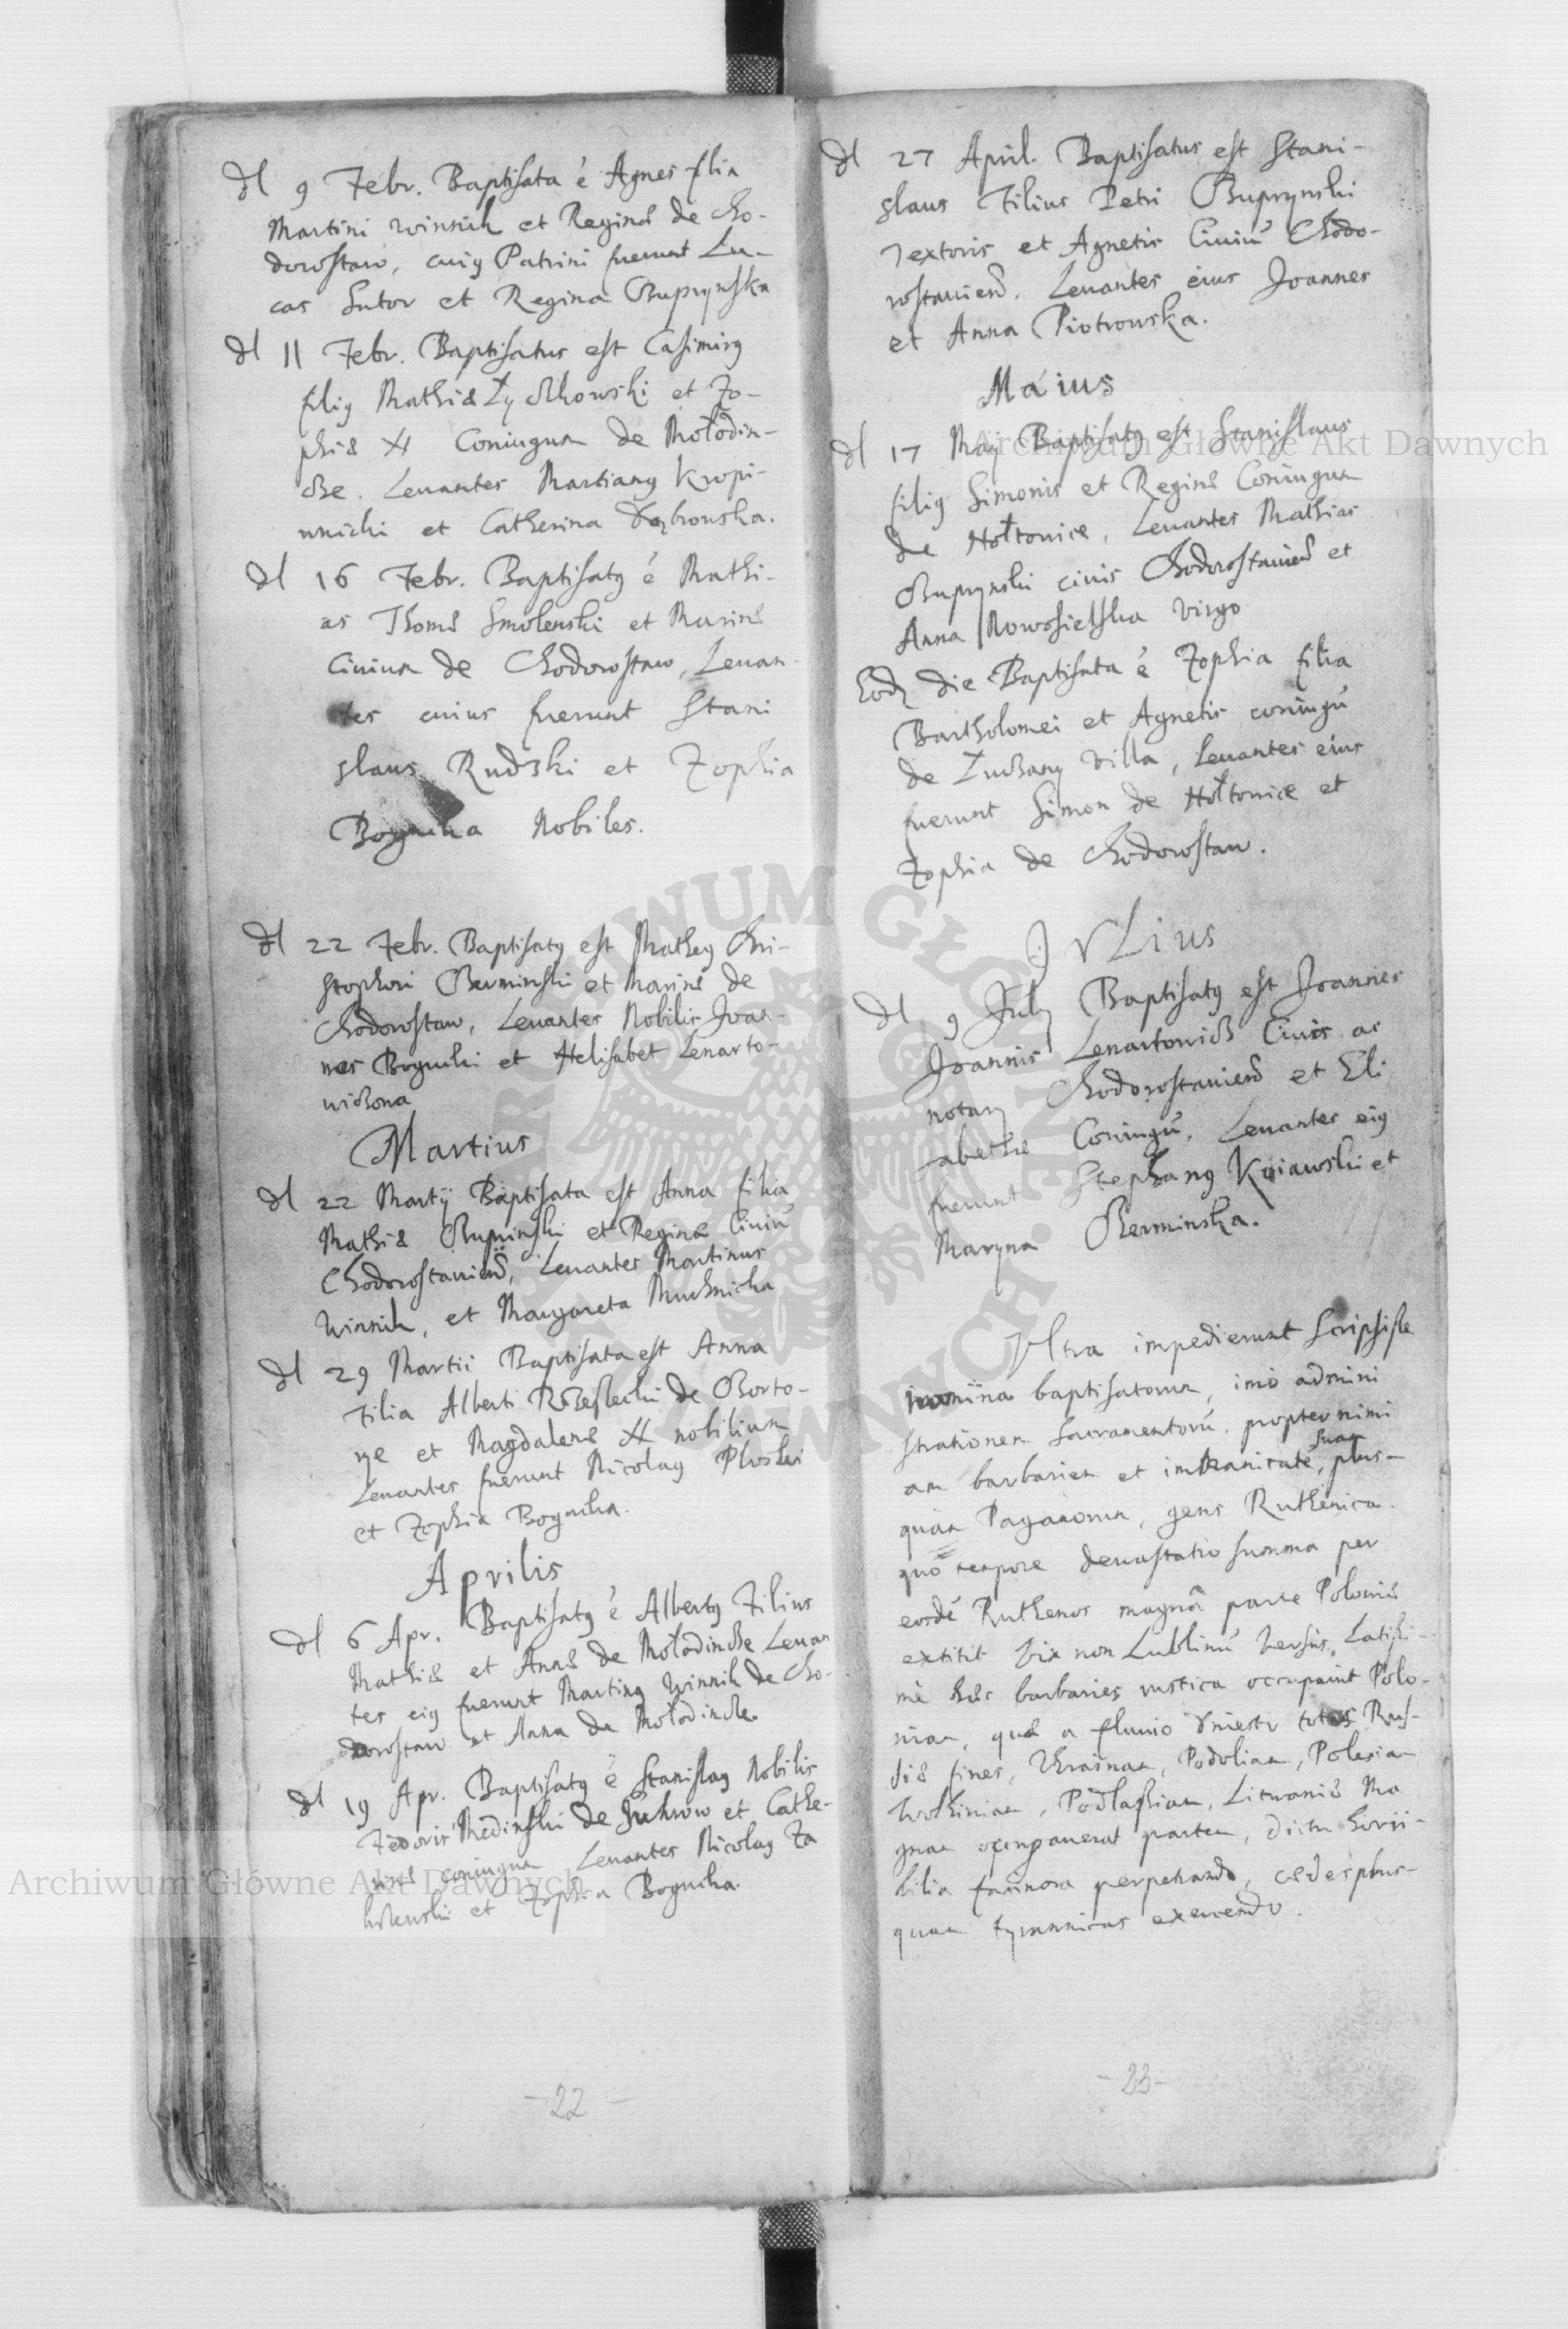 Dl 9 Febr. Baptisata é Agnes filia
Martini Winnik et Reginæ de Cho-
dorostaw, cuiq Patrini fuerunt Lu-
cas Sutor et Regina Chuprynska
Dl 11 Febr. Baptisatus est Casimirq
filiq Mathiæ et Zo-
phiæ Coniugum de Mołodin-
che. Leuantes Martianq Kropi-
wnicki et Catherina Dębrowska.
Dl 16 Febr. Baptisatq é Mathi-
as Thomæ Smolenski et Marinæ
Ciuium de Chodorostaw, Leuan-
tes cuius fuerunt Stani
slaus Rudzki et Zophia
Bogucka Nobiles.
Dl 22 Febr. Baptisatq est Matheq Chri-
stophori Berminski et Marinæ de
Chodorostaw, Leuantes Nobilis Joan-
nes Bogucki et Helisabet Lenarto-
wichona
Martius
Dl 22 Martij Baptisata est Anna filia
Mathiæ Chuprinski et Reginæ Ciuiū
Chodorostauien, Leuantes Martinus
Winnik, et Margareta
Dl 29 Martii Baptisata est Anna
Filia Alberti de Chorto-
et Magdalenæ nobilium
Leuantes fuerunt Nicolaq Ploski
et Zophia Bogucka.
Aprilis
Dl 6 Apr. Baptisatq é Albertq Filius
Mathiæ et Annæ de Mołodinche Leuan
tes eiq fuerunt Martinq Winnik de Cho-
dorostaw et Anna de Mołodinche
Dl 19 Apr. Baptisatq é Stanislaq Nobilis
Fedoris Medinski de et Cathe-
rinæ coniugum Leuantes Nicolaq Za
et Zophia Bogucka.
- 22 -
Dl 27 April. Baptisatus est Stani-
slaus Filius Petri Chuprynski
Textoris et Agnetis Ciuiū Chodo-
rostauien. Leuantes eius Joannes
et Anna Piotrowska.
Maius
Dl 17 Maij Baptisatq est Stanislaus
filiq Simonis et Reginæ Coniugum
de Hołtouice, Leuantes Mathias
Chuprynski ciuis Chodorostauien et
Anna Nowosielska Virgo
Eodē die Baptisata é Zophia filia
Bartholomei et Agnetis coniugū
de Łuchany Villa, Leuantes eius
fuerunt Simon de Hołtouice et
Zophia de Chodorostaw.
JVLius
Dl 9 July Baptisatq est Joannes
Joannis Lenartowich Ciuis ac
notarij Chodorostauien et Eli
sabethæ Coniugū, Leuantes eiq
fuerunt Stephanq Kuiawski et
Maryna Berminska.
Vltra impedierunt Scripsisse
nomina baptisatorum, imo admini
strationem Sacramentorū, propter nimi
am barbariem et immanitatē suam, plus-
quam Paganorum, gens Ruthenica.
quo tempore deuastatio summa per
eosdē Ruthenos magnâ parte Poloniæ
extitit vix non Lublinū versus. Latissi-
mè hæc barbaries rustica occupauit Polo-
niam, quæ a fluuio Dniestr totas Rus-
siæ fines, Vkrainam, Podoliam, Polesiam
Wolhiniam, Podlassiam, Lituaniæ Ma
gnam occupauerat partem, dictu horri-
bilia facinora perpetrando, cædes plus-
quam tyrannicas exercendo.
- 23 -
Archiwum Główne Akt Dawnych
Archiwum Główne Akt Dawnych
ARCHIWUM GŁÓWNE AKT DAWNYCH